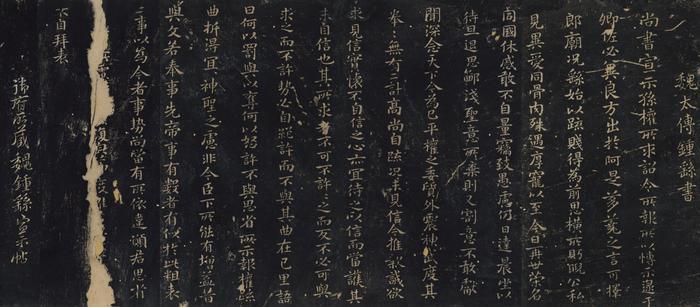 魏太傅鍾繇書
尚書宣示孫權所求詔令所報所以博示逮
卿佐必冀良方出於阿是芻蕘之言可擇
郎廟況繇始以疏賤得為前恩橫所盻睨公私
見異愛同骨肉殊遇厚寵以至今日再世榮名
同國休慼敢不自量竊致愚慮仍日達晨坐以
待旦退思鄙淺聖意所棄則又割意不敢獻
聞深念天下今為已平權之委質外震神武度其
拳拳無有二計高尚自疏況未見信今推款誠欲
求見信實懷不自信之心亦宜待之以信而當護其
未自信也其所求者不可不許許之而反不必可與
求之而不許勢必自絕許而不與其曲在己里語
曰何以罰與以奪何以怒許不與思省所示報權疏
曲折得宜宜神聖之慮非今臣下所能有增益昔
與文若奉事先帝事有數者有似於此粗表
二事以為今者事勢尚當有所依違願君思省
復
不自拜表
府所藏魏鍾繇宣示帖